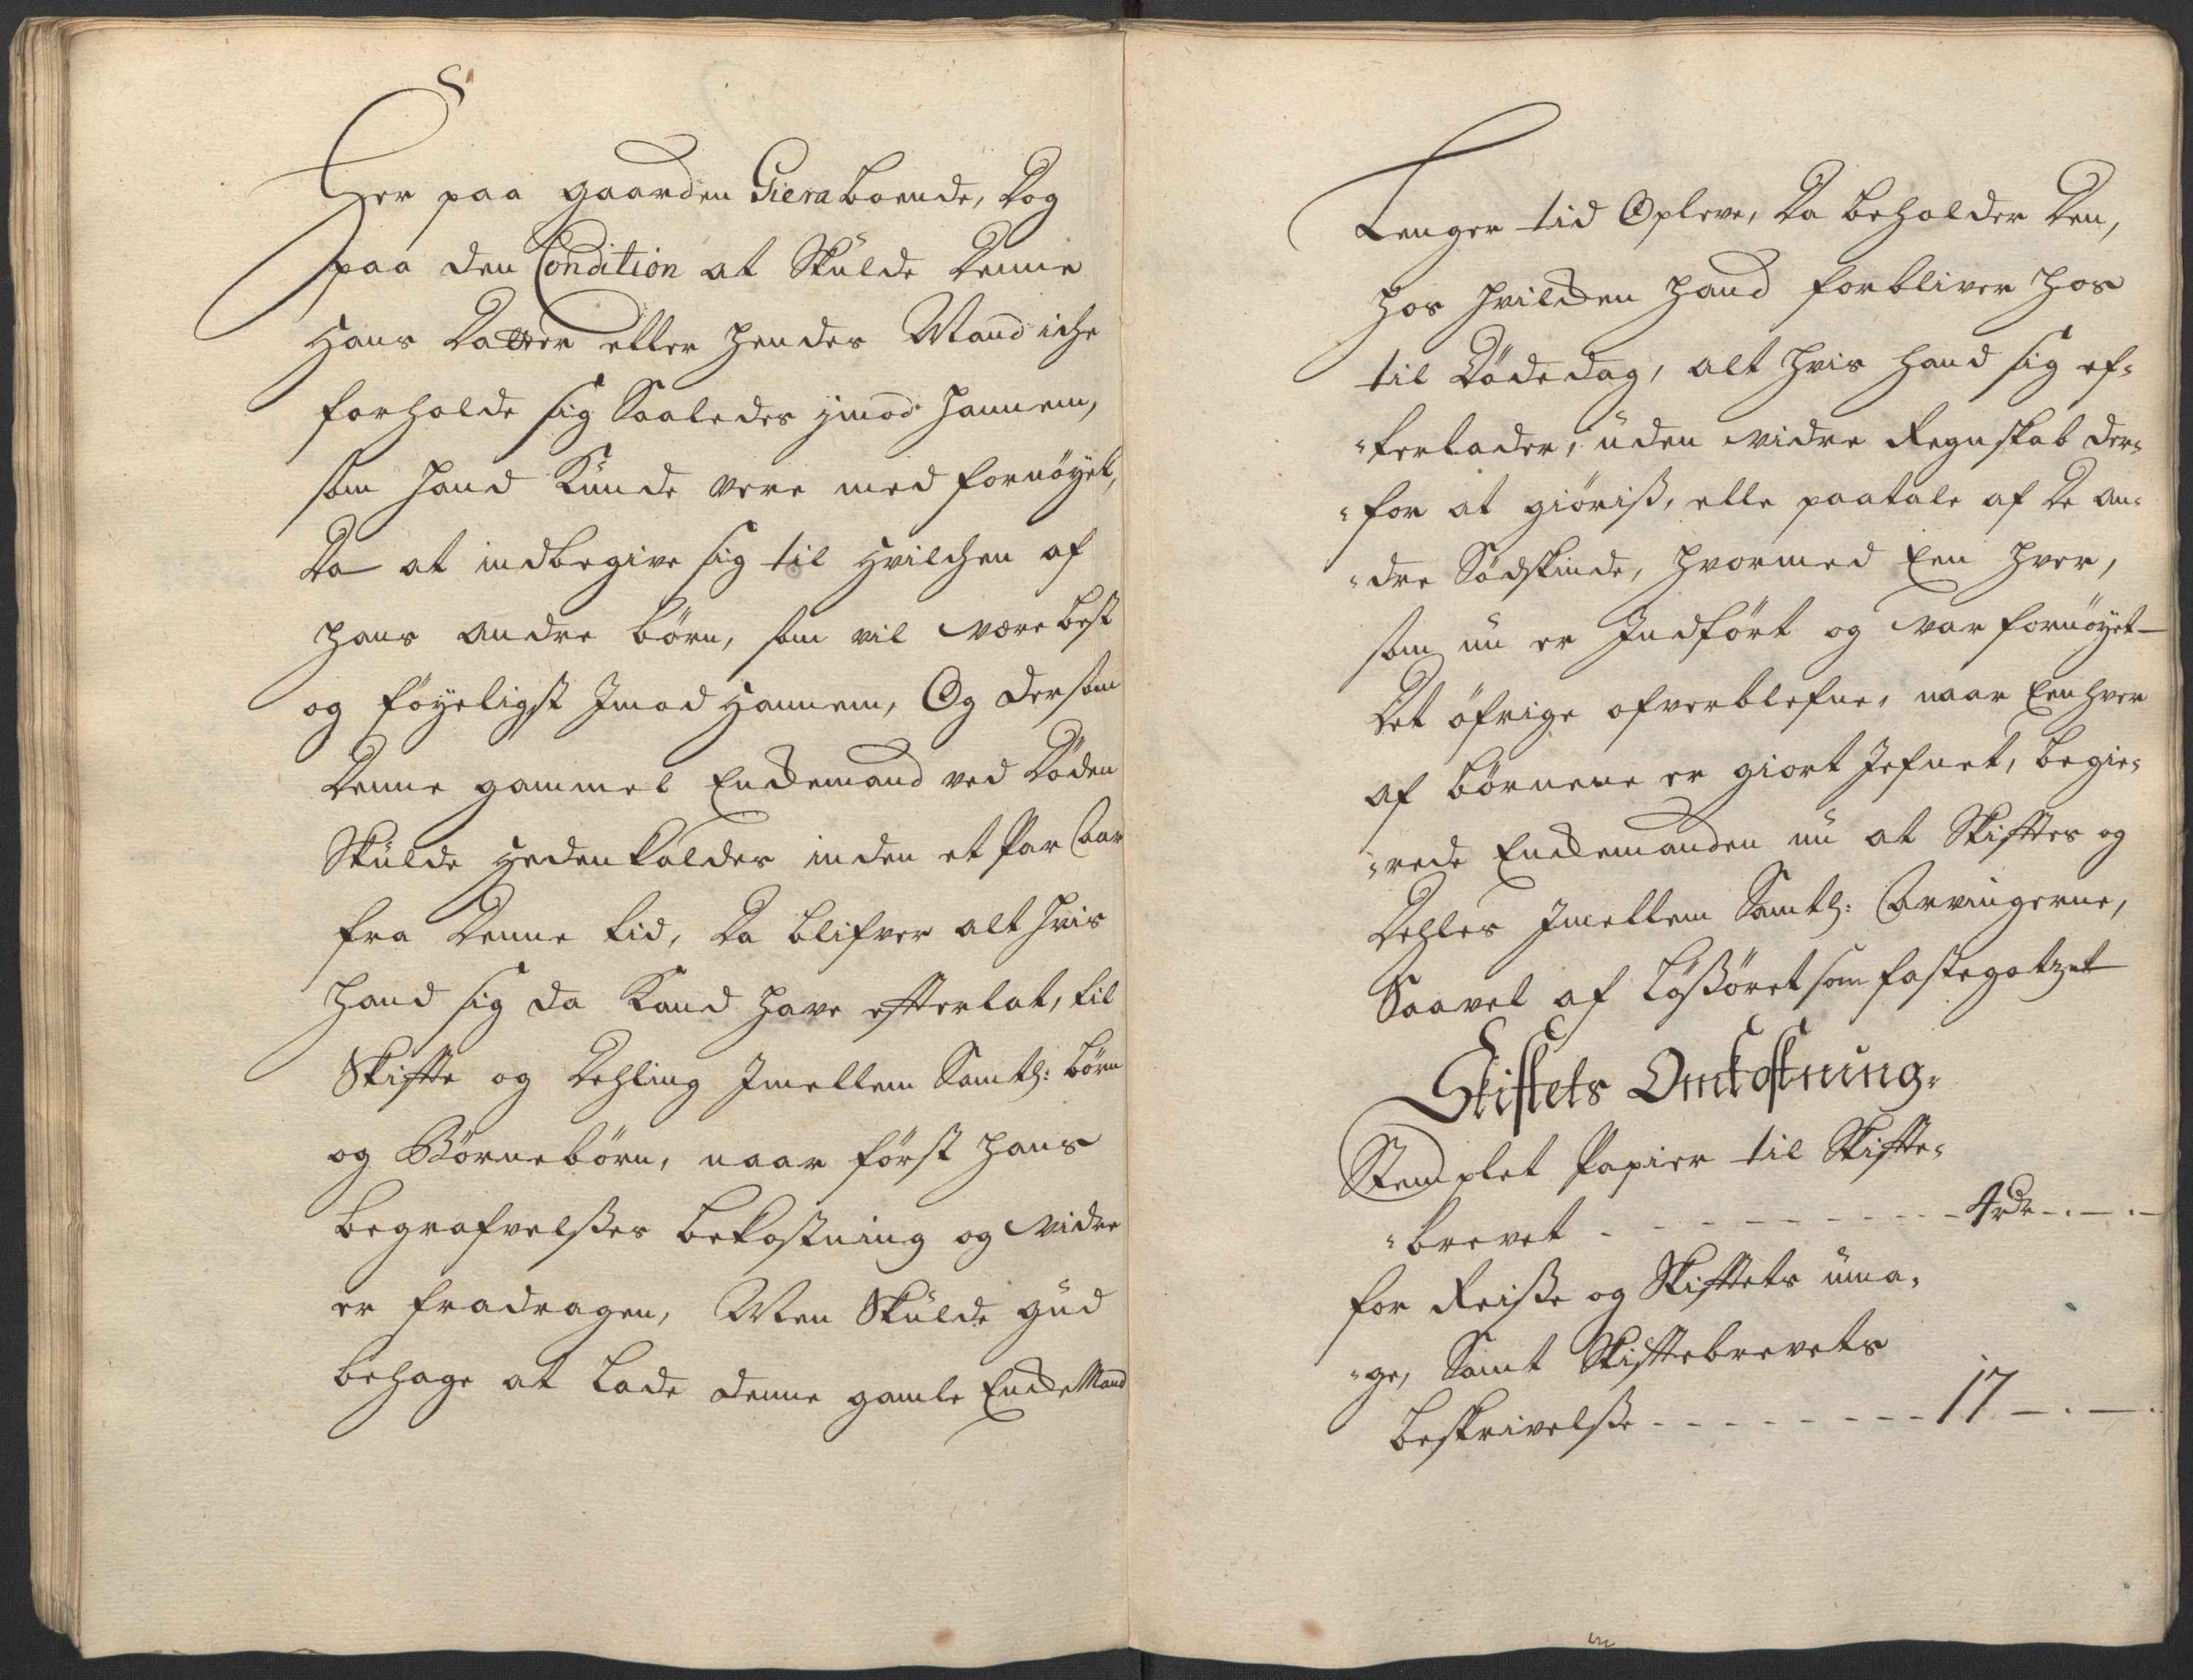 Her paa gaarden Giera boende, Dog
paa den Condition at Skulde Denne
Hans Datter eller hendes Mand iche
forholde sig Saaledes imod hannem,
som hand Kunde vere med fornöyet,
Da at indbegive sig til Hvilchen af
hans andre börn, som vil være best
og föyeligst Imod Hannem, Og dersom
Denne gammel Enckemand ved Döden
Skulde Hedenkaldes inden et Par Aar
fra Denne tid, Da blifver alt hvis
hand sig da Kand have effterlat, til
Skiffte og Dehling Imellem Samtl: börn
og Börnebörn, naar först hans
begrafvelsses bekostning og vidre
er fradragen, Men Skulde gud
behage at lade denne gamle Encke Mand
Lenger tid Opleve, Da beholder Den,
hos hvilcken hand forbliver hos
til Dödedag, alt hvis hand sig ef-
-terlader, uden vidre Regnskab der-
-for at giöriss, elle paatale af De an-
-dre Södskinde, hvormed Een hver,
som nu er Indfört og var fornöyet
Det öfrige ofverblefne, naar Een hver
af börnene er giort Jefnet, begie-
-rede Enckemanden nu at Skifftes og
Dehles Imellem Samtl: Arvingerne,
Saavel af Lössöret som fastegotzet
Skiftets Omkostning.
Stemplet Papier til Skiffte-
-brevet - - - - - - - - - 4rdr - . - . -
for Reisse og Skifftets uma-
-ge, Samt Skifftebrevets
beskrivelsse - - - - - - - - 17 - . - .